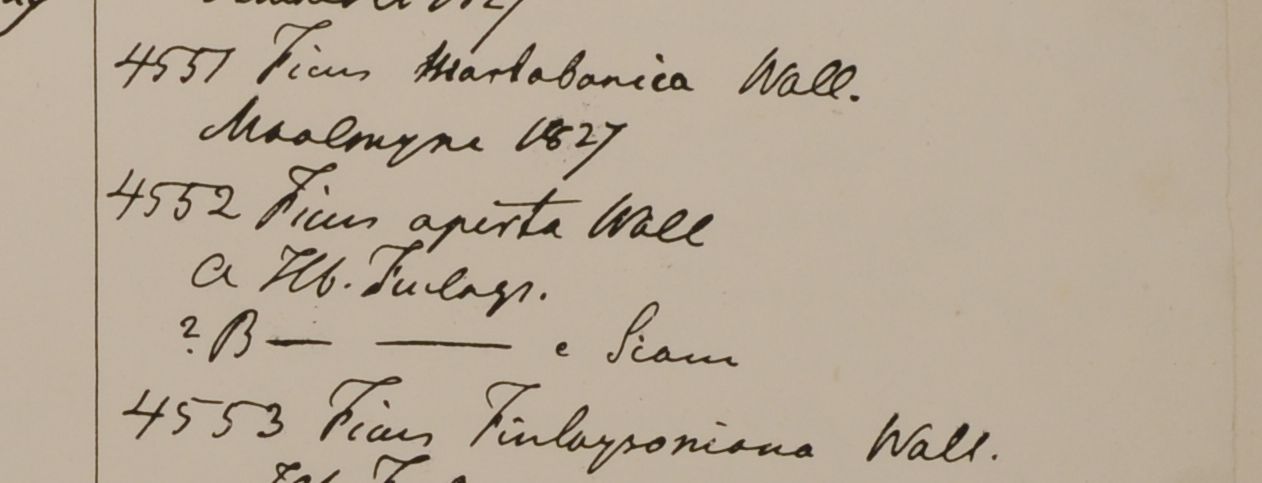 1827
4551 Ficus Martabanica Wall.
Moolmyne 1827
4552 Ficus aperta Wall
a Hb. Finlays.
? B — —— e Siam
4553 Ficus Finlaysoniana Wall.